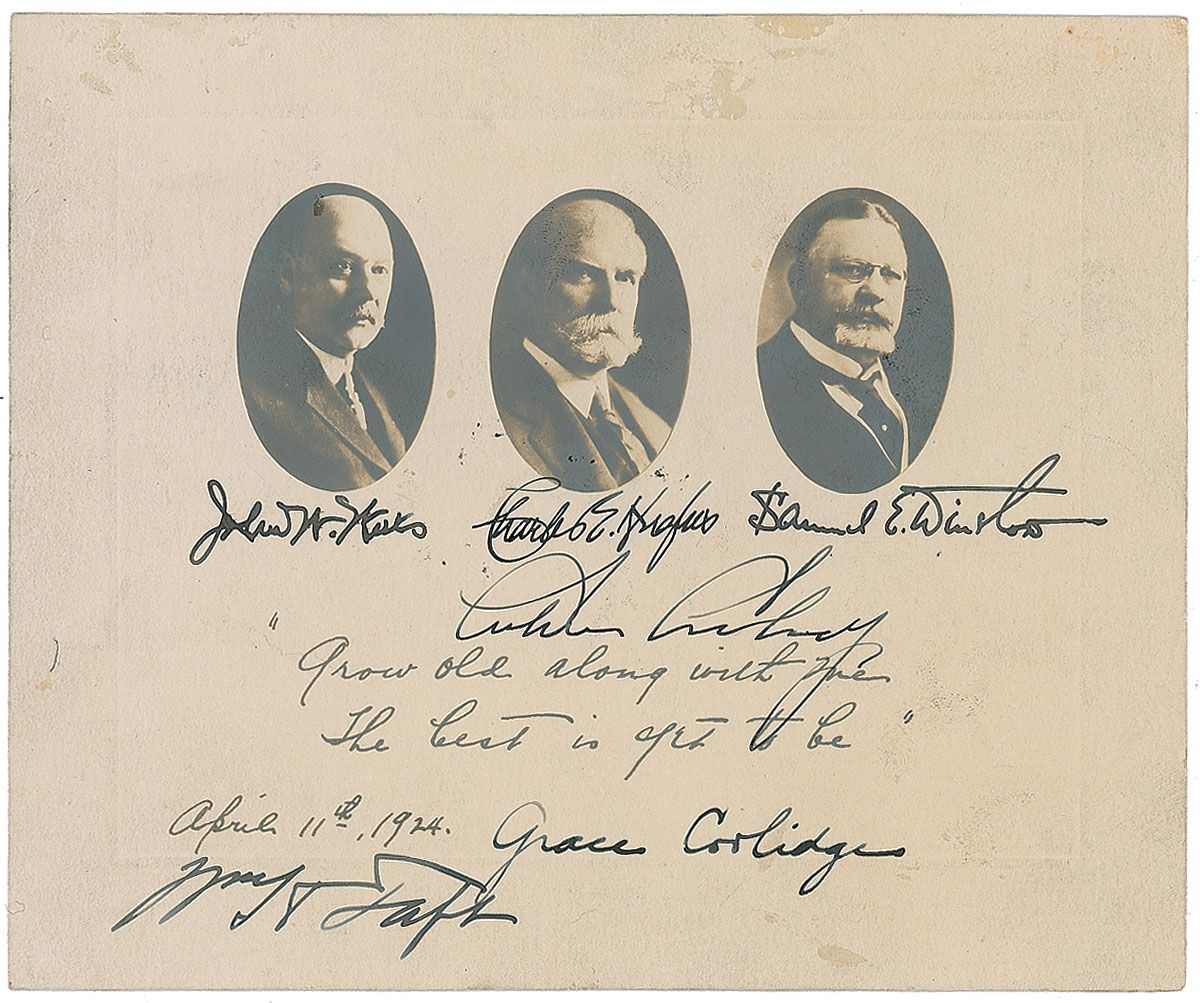 John W. Weeks Charles E. Hughes Samuel E. Winslow
Calvin Coolidge
"Grow old along with me
The best is yet to be"
April 11th, 1924. Grace Coolidge
Wm H Taft